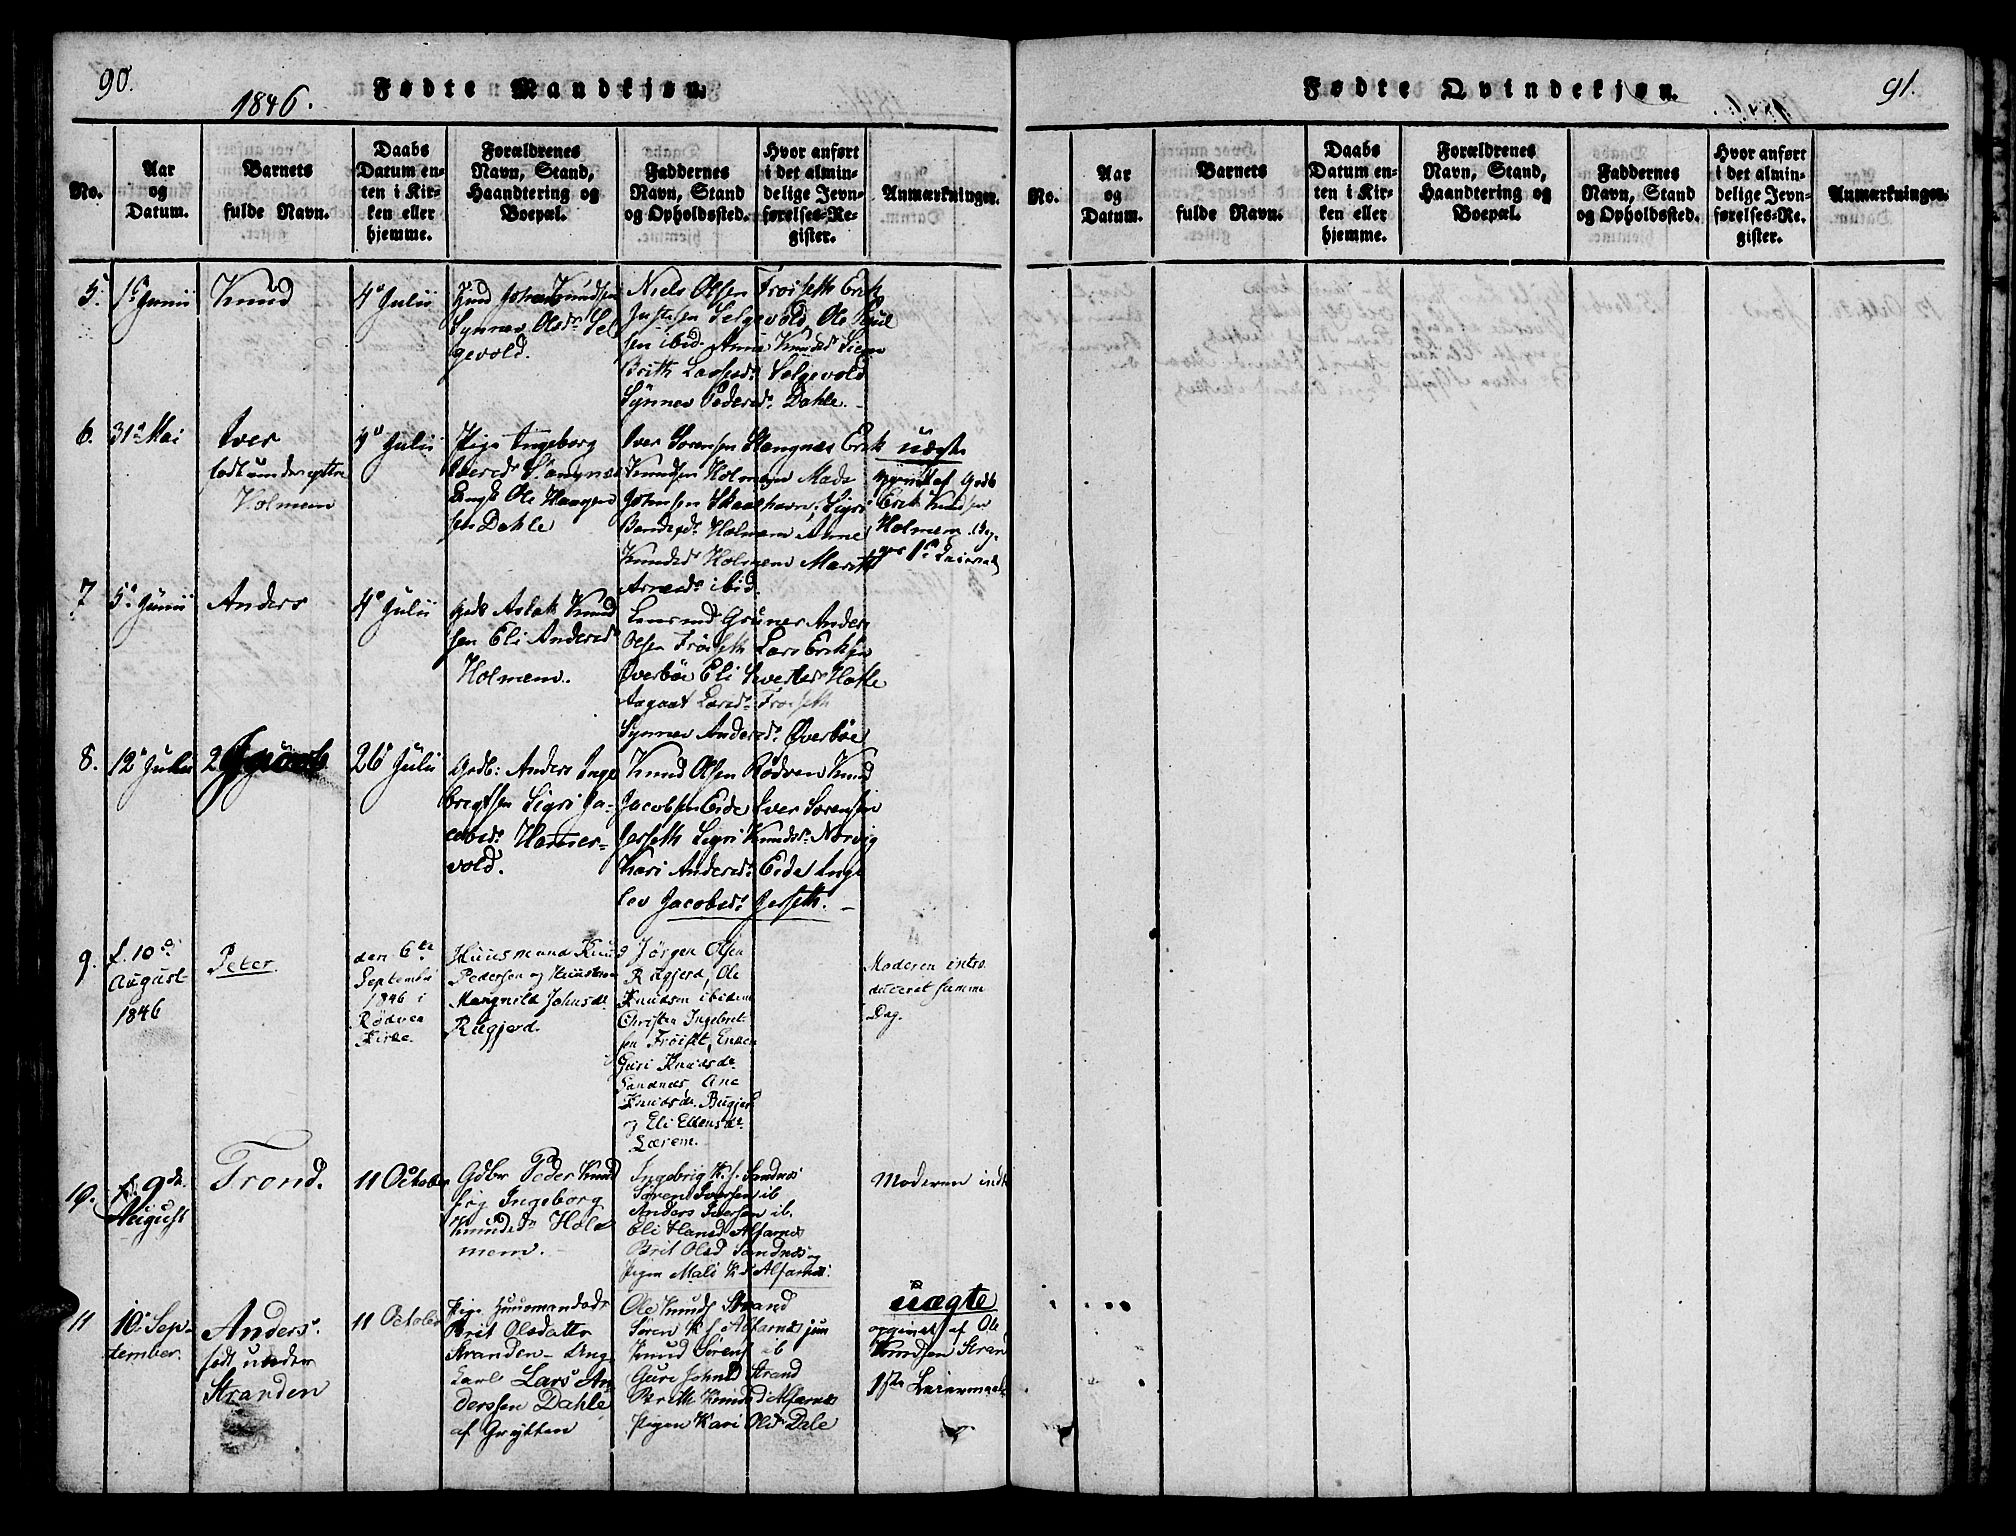 90.
1846.
Fødte Mandkjøn.
No.
Aar
og
Datum.
Barnets
fulde Navn.
Daabs
Datum en-
ten i Kir-
ken eller
hjemme.
Forældrenes
Navn, Stand,
Haandtering og
Boepæl.
Faddernes
Navn, Stand
og Opholdssted.
Hvor anført
i det almin-
delige Jevn-
førelses-Re-
gister.
Anmærkninger.
5.
1ª Junii
Knud
4ª Julii
Knud Johan Knudsen
Synnev Olsdr Sel
gevold.
Niels Olsen Froiseth Erik
Selgevold, Ole Poul
sen ibid. Anna Knudsdr
Brith Larsdr Selgevold
Synnev Pedersdr. Dahle.
6.
31ª Mai
Iver
født under
Holmem
4ª Julii
Pige Ingeborg
Ole Haagen
sen Dahle
Iver Sørensen Hangnæs Erik
Knudsen Holmem Mads
Johnsen Skaalhavn, Sigri
Holmem Anne
Knudsdr Holmem Marith
Arnesdr ibid.
uægte
opgivet af Gdb
Erik Knudsen
Holmem
7
5ª Junii
Anders
4ª Julii
Gdb Aslak Knud
sen Eli Andersdr
Holmem.
Lensmd Grüner Anders
Olsen Froiseth Lars Eriksen
Øverbøe Eli Hatle
Aagaat Larsdr Froiseth
Synnev Andersdr. Øverbøe
8.
12ª Julii
26ª Julii
Gdb: Anders Inge
brigtsen Sigri Ja-
cobsdr. Hamer-
vold.
Knud Olsen Rødven Knud
Jacobsen Eide Iver Sørensen
Jerseth Sigri Knudsdr. Norvig
Kari Andersdr. Eide Inge
lev Jacobsdr. Jerseth.
9.
f. 10de
August
1846
Peter
den 6te
September
1846 i
Rødven
Kirke.
Huusmand Knud
Pedersen og
Margnild Johnsdr
Rugjerd.
Jørgen Olsen
Rugjerd, Ole
Knudsen ibidem
Christen Ingebret-
sen Froiset, Enken
Guri Knudsdr
Sandnæs, Ane
Knudsdr. Rugjerd
og Eli Ellensdr.
Lærem.
Moderen intro
duceret samme
Dag.
10.
f. 9de
August
Trond.
11 October
Gdbr Peder Knud
søn Ingeborg
Knudsdr Hol
mem.
Ingebrig K. s. Sandnæs
Søren Iversen ib
Anders Iversen ib.
Eli Hansd Alfarnæs
Brit Olsd Sandnæs og
Pigen Mali K d Alfarnæs.
Moderen indt
11
10. Sep-
tember.
Anders.
født under
Stranden
11 October
Pige Huusmandsdr
Brit Olsdatter
Stranden – Ung
karl Lars An
derssen Dahle
af Grytten
Ole Knuds Strand
Søren K. s. Alfarnæs jun
Knud Sørens ib
Guri Johnsd Strand
Brith Knudsd Alfarnæs
Pigen Kari Olsd Dale
uægte
opgivet af Ole
Knudsen Strand
1ste Leiermaal
Fødte Qvindekjøn.
91.
No.
Aar
og
Datum.
Barnets
fulde Navn.
Daabs
Datum en-
ten i Kir-
ken eller
hjemme.
Forældrenes
Navn, Stand,
Haandtering og
Boepæl.
Faddernes
Navn, Stand
og Opholdssted.
Hvor anført
i det almin-
delige Jevn-
førelses-Re-
gister.
Anmærkninger.